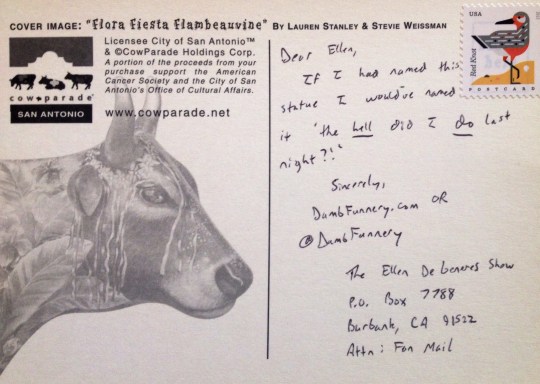 COVER IMAGE: "Flora Fiesta Flambeauvine" BY LAUREN STANLEY & STEVIE WEISSMAN
Licensee City of San Antonio™
& ©CowParade Holdings Corp.
A portion of the proceeds from your
purchase support the American
Cancer Society and the City of San
Antonio's Office of Cultural Affairs.
cow parade®
SAN ANTONIO
www.cowparade.net
USA
Red Knot
POSTCARD
Dear Ellen,
If I had named this
statue I would've named
it "the hell did I do last
night?!"
Sincerely,
DumbFunnery.com OR
@DumbFunnery
The Ellen DeGeneres Show
P.O. Box 7788
Burbank, CA 91522
Attn: Fan Mail